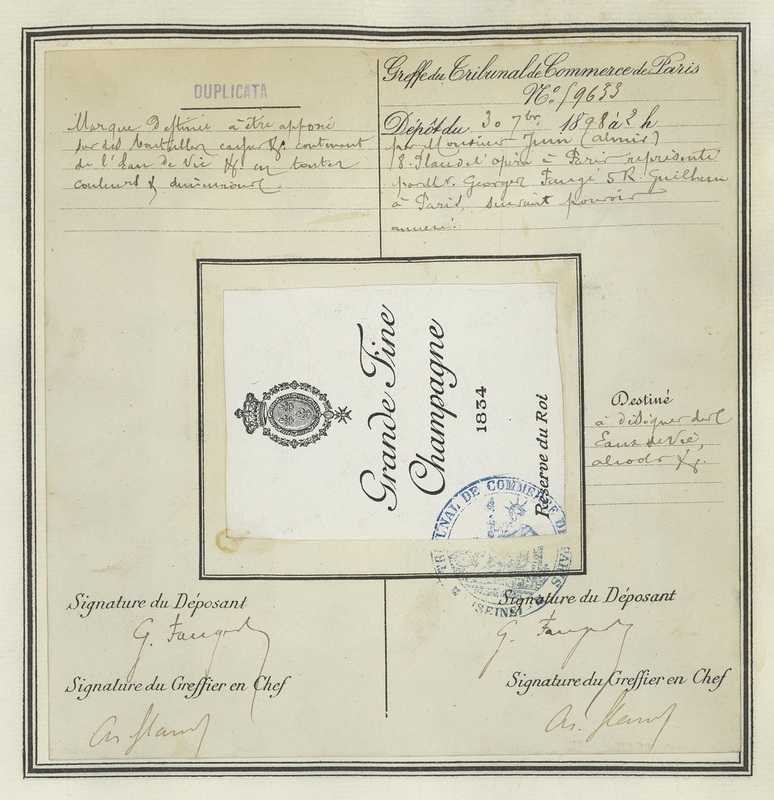 DUPLICATA
Marque Destinée à être apposée
sur des bouteilles, caisses &. contenant
de l'Eau de Vie &. en toutes
couleurs & dimensions.
Greffe du Tribunal de Commerce de Paris
No 59633
Dépôt du 30 7bre 1898 à 2 h
par Monsieur
8. Place de l'opéra à Paris représenté
par Mr. Georges 5 R.
à Paris, suivant pouvoir
annexé.
Grande Fine
Champagne
1834
Réserve du Roi
Destiné
à désigner des
Eaux de Vie,
alcools &.
TRIBUNAL DE COMMERCE DE PARIS
(SEINE)
Signature du Déposant
Signature du Greffier en Chef
Signature du Déposant
Signature du Greffier en Chef